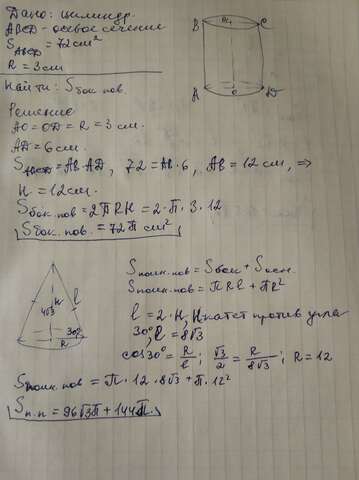 Дано: цилиндр.
ABCD - осевое сечение
S ABCD = 72 см²
R = 3 см
Найти: S бок. пов.
B O₁ C
A O D
Решение
AO = OD = R = 3 см.
AD = 6 см.
S ABCD = AB·AD, 72 = AB·6, AB = 12 см, ⇒
H = 12 см.
S бок. пов = 2ПRH = 2·П·3·12
S бок. пов. = 72П см²
4√3 H l
30° R
S полн. пов = S бок + S осн.
S полн. пов = ПRl + ПR²
l = 2·H, H катет против угла
30°, l = 8√3
cos30° = R/l; √3/2 = R/8√3; R = 12
S полн. пов = П·12·8√3 + П·12²
S п.п = 96√3П + 144П.